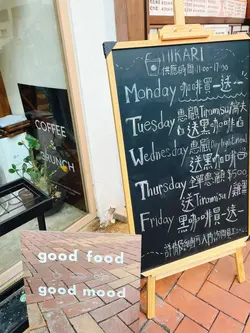 HIKARI
供應時間 11:00-17:00
Monday 咖啡買一送一
Tuesday 惠顧Tiramisu
送黑咖啡
Wednesday 惠顧
送黑咖啡
Thursday 惠顧 $500
送Tiramisu
Friday 黑咖啡買一送一
COFFEE
BRUNCH
good food
good mood